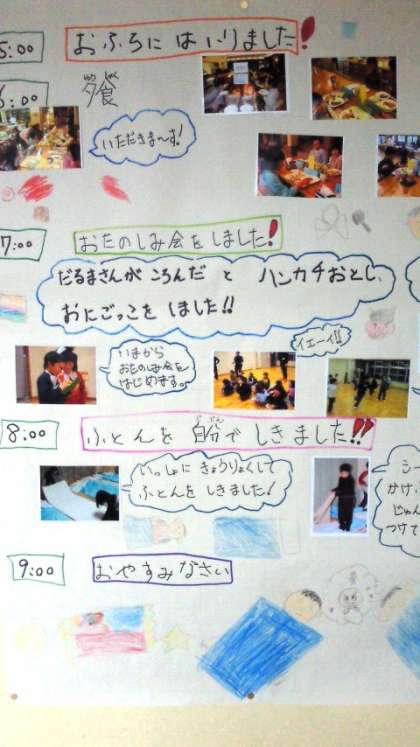 5:00 おふろにはいりました!
6:00
いただきまーす!
7:00 おたのしみ会をしました!
だるまさんがころんだ と ハンカチおとし、
おにごっこをしました!!
イエーイ!!
いまから
おたのしみ会を
はじめます。
8:00 ふとんを自分でしきました!!
じぶん
いっしょにきょうりょくして
ふとんをしきました!
シー
かけ
じゅん
つけて
9:00 おやすみなさい